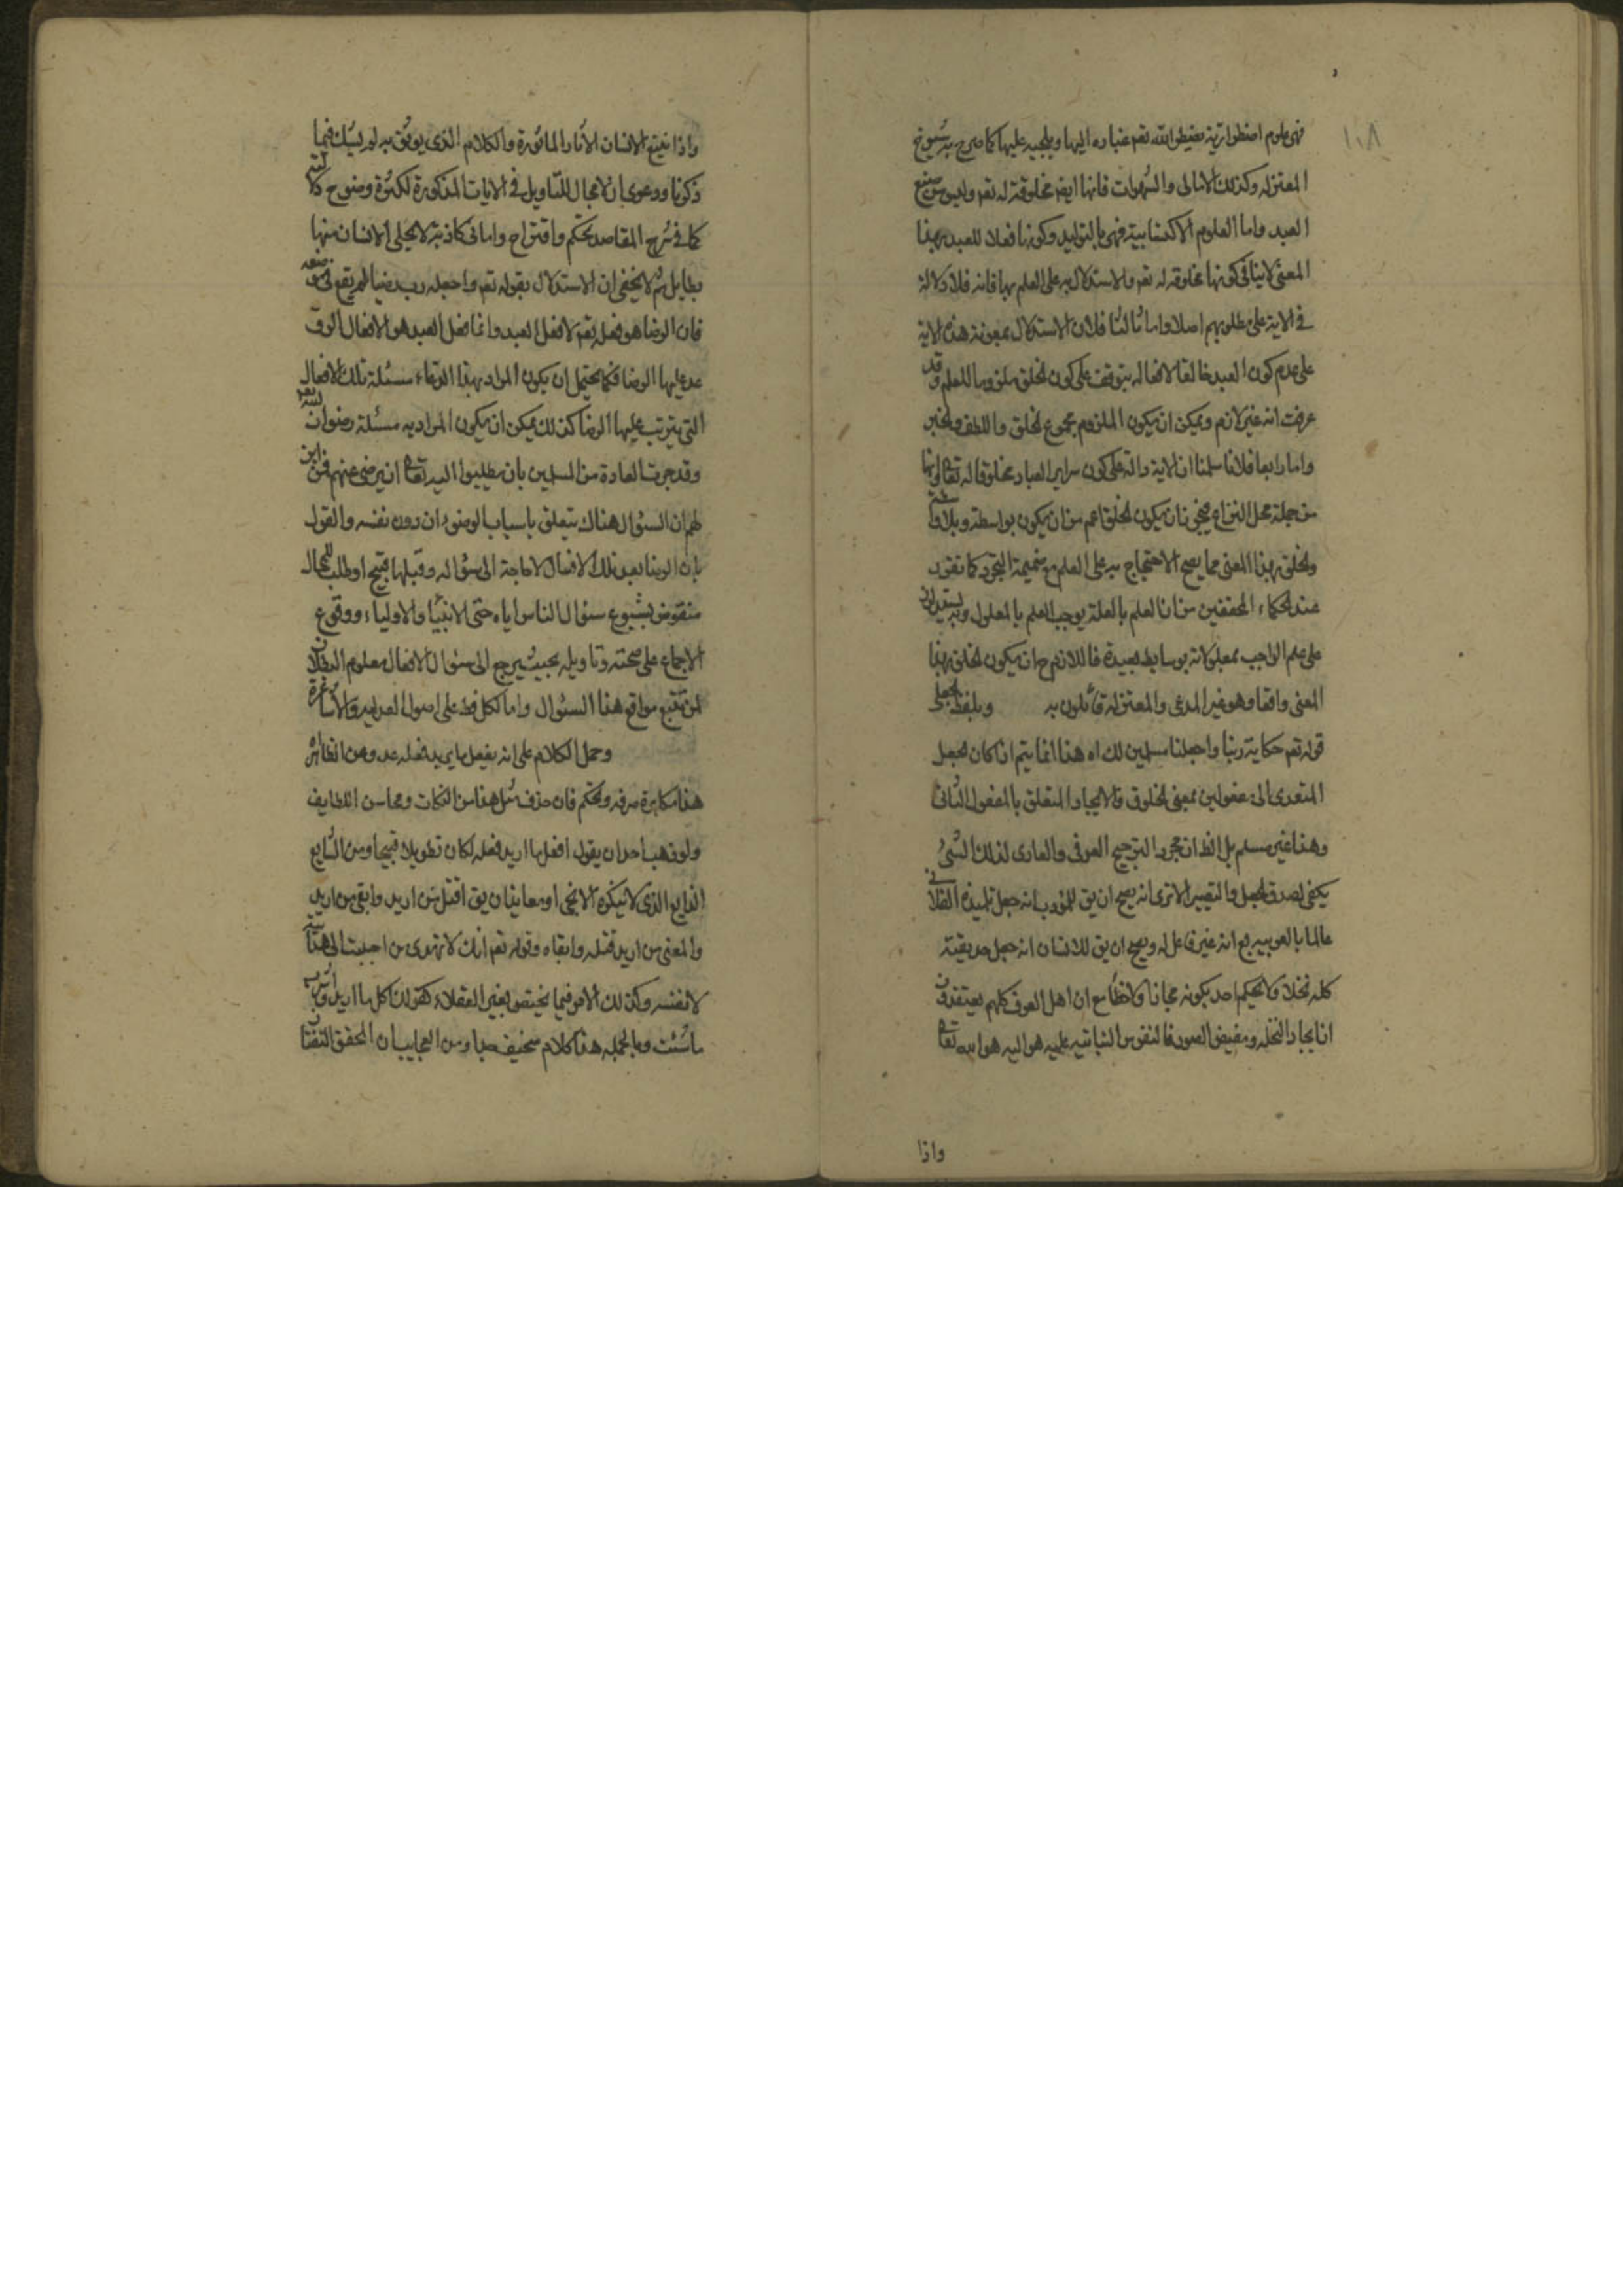 ١٠٨
فهي علوم اضطرارية يضطر الله تعم عباده اليها ويلجيهم عليها كما صرح به شيوخ
المعتزله وكذلك الاماني والشهوات فانها ايضا مخلوقة له تعم وليس من صنع
العبد واما العلوم الاكتسابية فهي بالتوليد وكونها فعلا للعبد بهذا
المعنى لاينافي كونها مخلوقة له تعم والاستدلال به على العلم بها فانه فلا دلالة
في الاية على مطلوبهم اصلا واما ثالثا فلان الاستدلال بمعونة هذه الاية
على عدم كون العبد خالقا لافعاله يتوقف على كون الخلق ملزوما للعلم وقد
عرفت انه غير لازم ويمكن ان يكون الملزوم مجموع الخلق واللطف والخبر
واما رابعا فلانا سلمنا ان الاية دالة على كون سراير العباد مخلوقا له تعالى وانها
من جملة محل النزاع فيجوز ان يكون الخلق اعم من ان يكون بواسطة وبلا واسطة
والخلق بهذا المعنى مما يصح الاحتجاج به على العلم مع ضميمة التجرد كما تقرر
عند الحكماء المحققين من ان العلم بالعلة يوجب العلم بالمعلول وبه يستدلون
على علم الواجب بمعلولاته بوسايط بعيدة فاللازم ح ان يكون الخلق بهذا
المعنى واقعا وهو غير المدعى والمعتزله قائلون به وبلفظ الجعل
قوله تعم حكاية ربنا واجعلنا مسلمين لك اه هذا انما يتم اذا كان الجعل
المتعدى الى مفعولين بمعنى الخلق والايجاد المتعلق بالمفعول الثاني
وهذا غير مسلم بل الظ ان مجرد الترجيح العرفي والعادي لذلك الشئ
يكفي لصدق الجعل والتصيير الاترى انه يصح ان يق للمؤدب انه جعل تلميذه الفلاني
عالما بالعربيه مع انه غير فاعل له ويصح ان يق للانسان انه جعل حديقته
كله نخلا ولا يحكم احد بكونه مجازا ولاخطأ مع ان اهل العرف كلهم يعتقدون
ان ايجاد النخله ومفيض الصورة النفوس النباتيه عليه هو اليه هو الله تعالى
واذا
واذا تتبع الانسان الآثار المأثورة والكلام الذي يوثق به لم يشك فيما
ذكرنا ودعوى ان لا مجال للتأويل في الايات المذكورة لكثرة وضوح دلالته
كما في شرح المقاصد تحكم واقتراح واماني كاذبة لايحلى الانسان منها
بطايل ثم لايخفى ان الاستدلال بقوله تعم واجعله رب رضيا لم يقع في موضعه
فان الرضا هو فعله تعم لا فعل العبد وانما فعل العبد هو الافعال الوق
عد عليها الرضا فكما يحتمل ان يكون المراد بهذا الدعاء مسئلة تلك الافعال
التي يترتب عليها الرضا كذلك يمكن ان يكون المراد به مسئلة رضوان الله تعم
وقد جرت العادة من المسلمين بان يطلبوا اليه تعالى ان يرضى عنهم فمن اين
لهم ان السؤال هناك يتعلق باسباب الرضوان دون نفسه والقول
بان الرضا بعد تلك الافعال لا حاجة الى سؤاله وقبلها قبيح او طلب للمحال
منقوض بشيوع سؤال الناس اياه حتى الانبيا والاولياء ووقوع
الاجماع على صحته وتاويله بحيث يرجع الى سؤال الافعال معلوم البطلان
لمن تتبع مواقع هذا السئوال واما لكل فظ على اصول العدليه والاشاعرة
وحمل الكلام على انه يفعل ما يريد فعله عدوه عن الظاهر
هذا مكابرة صرفه وتحكم فان حذف مثل هذا من النكات ومحاسن اللطايف
ولو ذهب احد ان يقول افعل ما اريد فعله لكان تطويلا قبيحا ومن الشايع
الذايع الذي لاينكره الا نحي او معاند ان يق اقتل من اريد وابقى من اريد
والمعنى من اريد قتله وابقاه وقوله تعم انك لاتهدى من احببت اى هدايته
لانفسه وكذلك الامر فيما يختص بغير العقلاء كقولك كل ما اريد واشرب
ما شئت وبالجمله هذا كلام سخيف جدا ومن العجايب ان المحقق التفتا